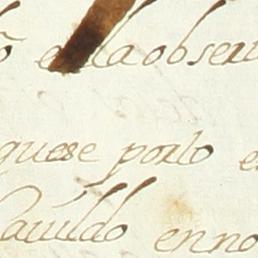 en la obser
quese por lo e
Cavildo en no